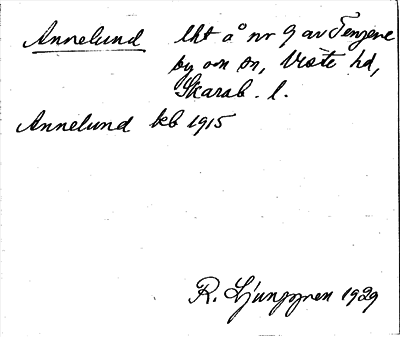 Annelund lht å nr 9 av Tengene
by o sn, Viste hd,
Skarab. l.
Annelund kb 1915
R. Ljunggren 1929